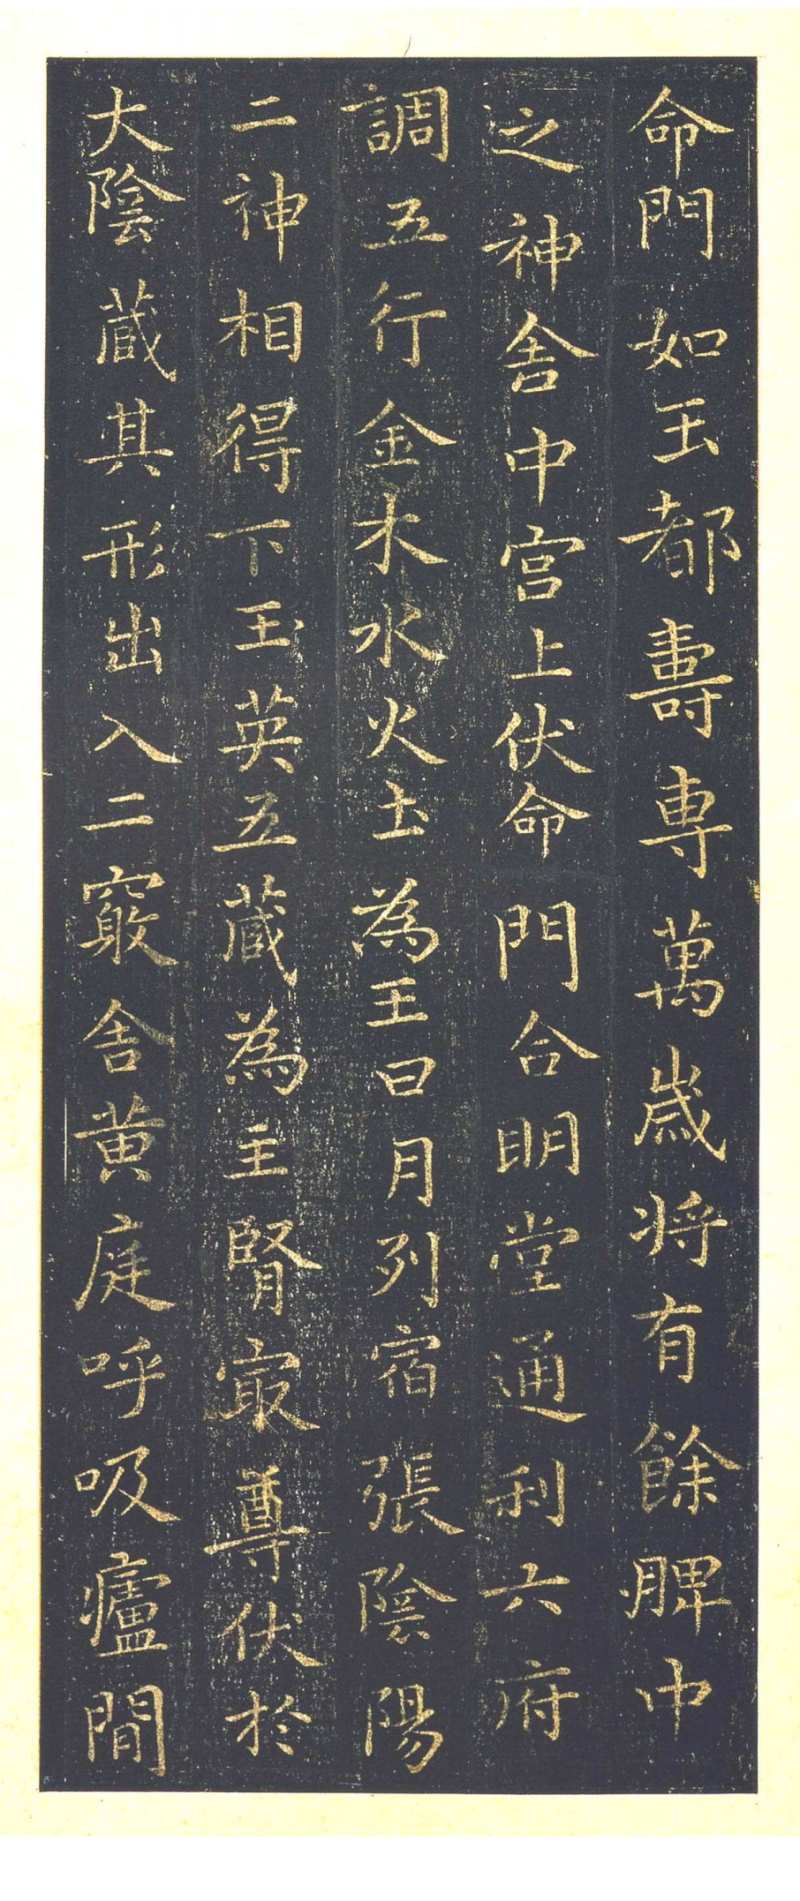 命門如玉都壽專萬歲将有餘脾中
之神舍中宮上伏命門合明堂通利六府
調五行金木水火土為王日月列宿張陰陽
二神相得下玉英五藏為主腎冣尊伏於
大陰藏其形出入二竅舍黄庭呼吸廬間